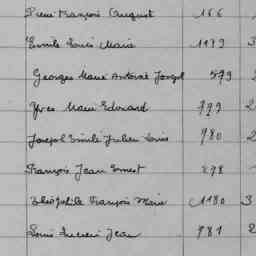 Pierre François August 166
Emile Louis Marie 1199 3
Georges Marie Antoine Joseph 579 2
Yves Marie Edouard 799 2
Joseph Emile Julien Louis 780 2
François Jean Ernest 298
Théophile François Marie 1180 3
Louis Lucien Jean 781 2